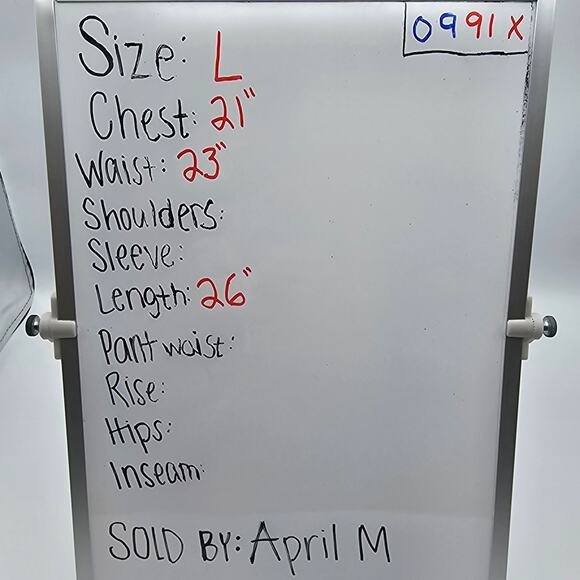 0991X
Size: L
Chest: 21"
Waist: 23"
Shoulders:
Sleeve:
Length: 26"
Pant waist:
Rise:
Hips:
Inseam:
SOLD BY: April M